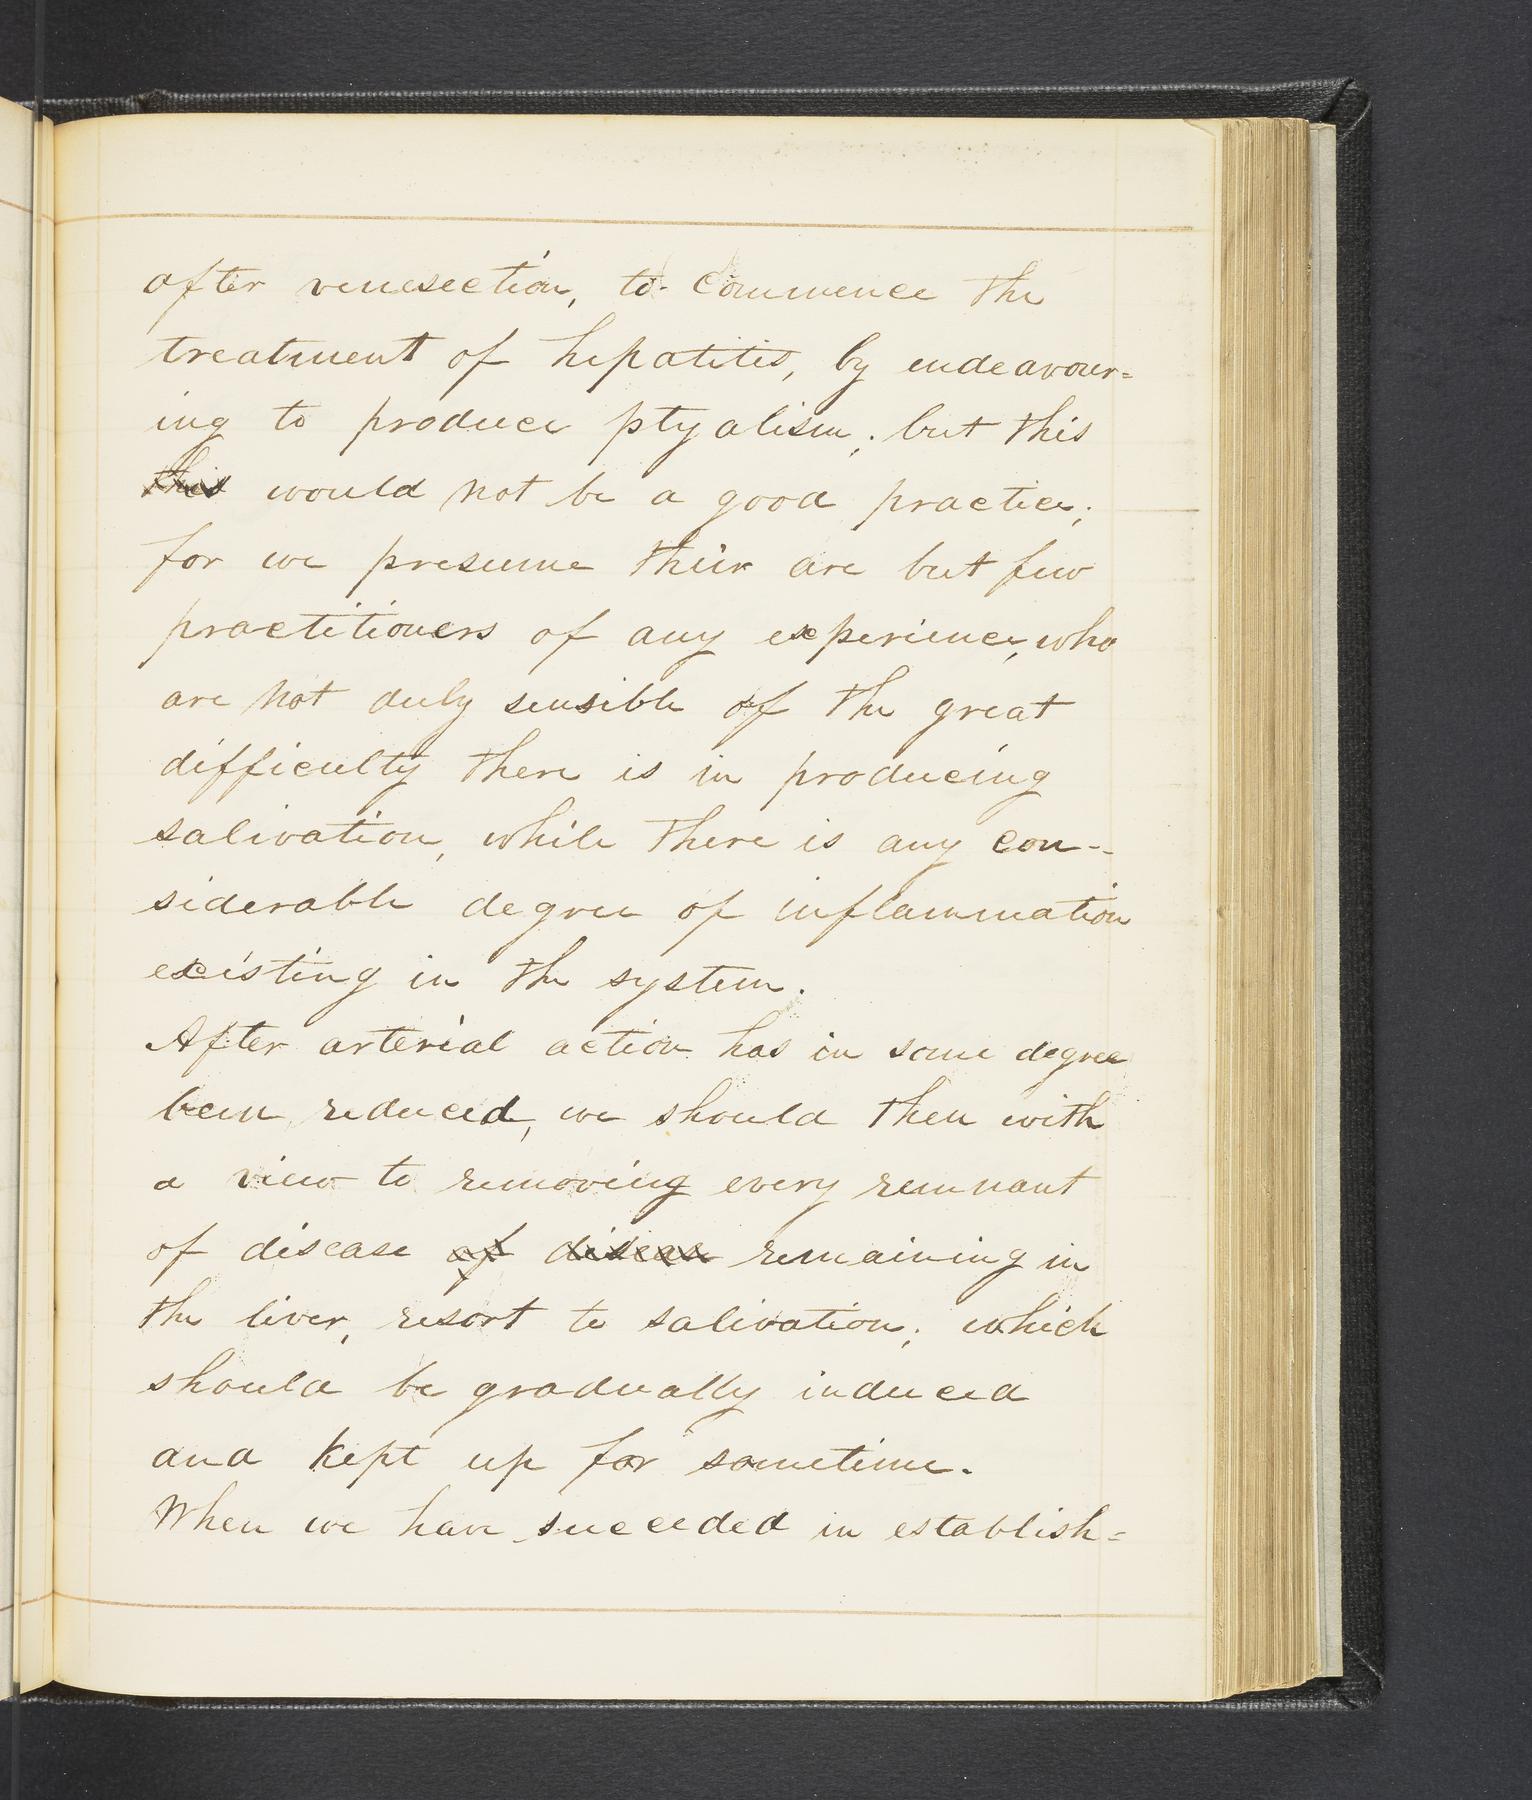 after venesection, to commence the
treatment of hepatites, by endeavour=
ing to produce ptyalism; but this
this would not be a good practice;
for we presume their are but few
practitioners of any experience, who
are not duly sensible of the great
difficulty there is in producing
salivation, while there is any con--
siderable degree of inflammation
existing in the system.
After arterial action has in some degree
been reduced, we should then with
a view to removing every remnant
of disease of disease remaining in
the liver, resort to salivation; which
should be gradually induced
and kept up for sometime.
When we have succeeded in establish=